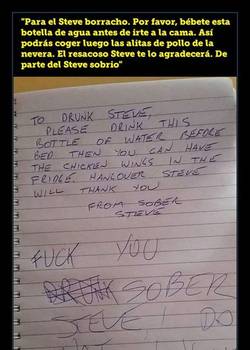 "Para el Steve borracho. Por favor, bébete esta
botella de agua antes de irte a la cama. Así
podrás coger luego las alitas de pollo de la
nevera. El resacoso Steve te lo agradecerá. De
parte del Steve sobrio"
TO DRUNK STEVE,
PLEASE DRINK THIS
BOTTLE OF WATER BEFORE
BED THEN YOU CAN HAVE
THE CHICKEN WINGS IN THE
FRIDGE HANGOVER STEVE
WILL THANK YOU
FROM SOBER
STEVE
FUCK YOU
DRUNK SOBER
STEVE! DO